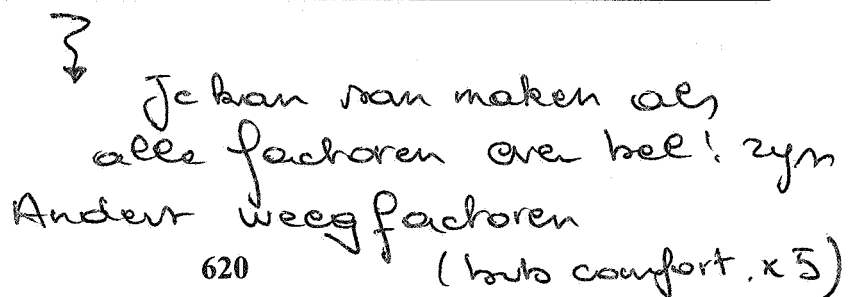 Je kan som maken als
alle factoren even bel! zijn
Anders weegfactoren
(bvb comfort. x 5)
620